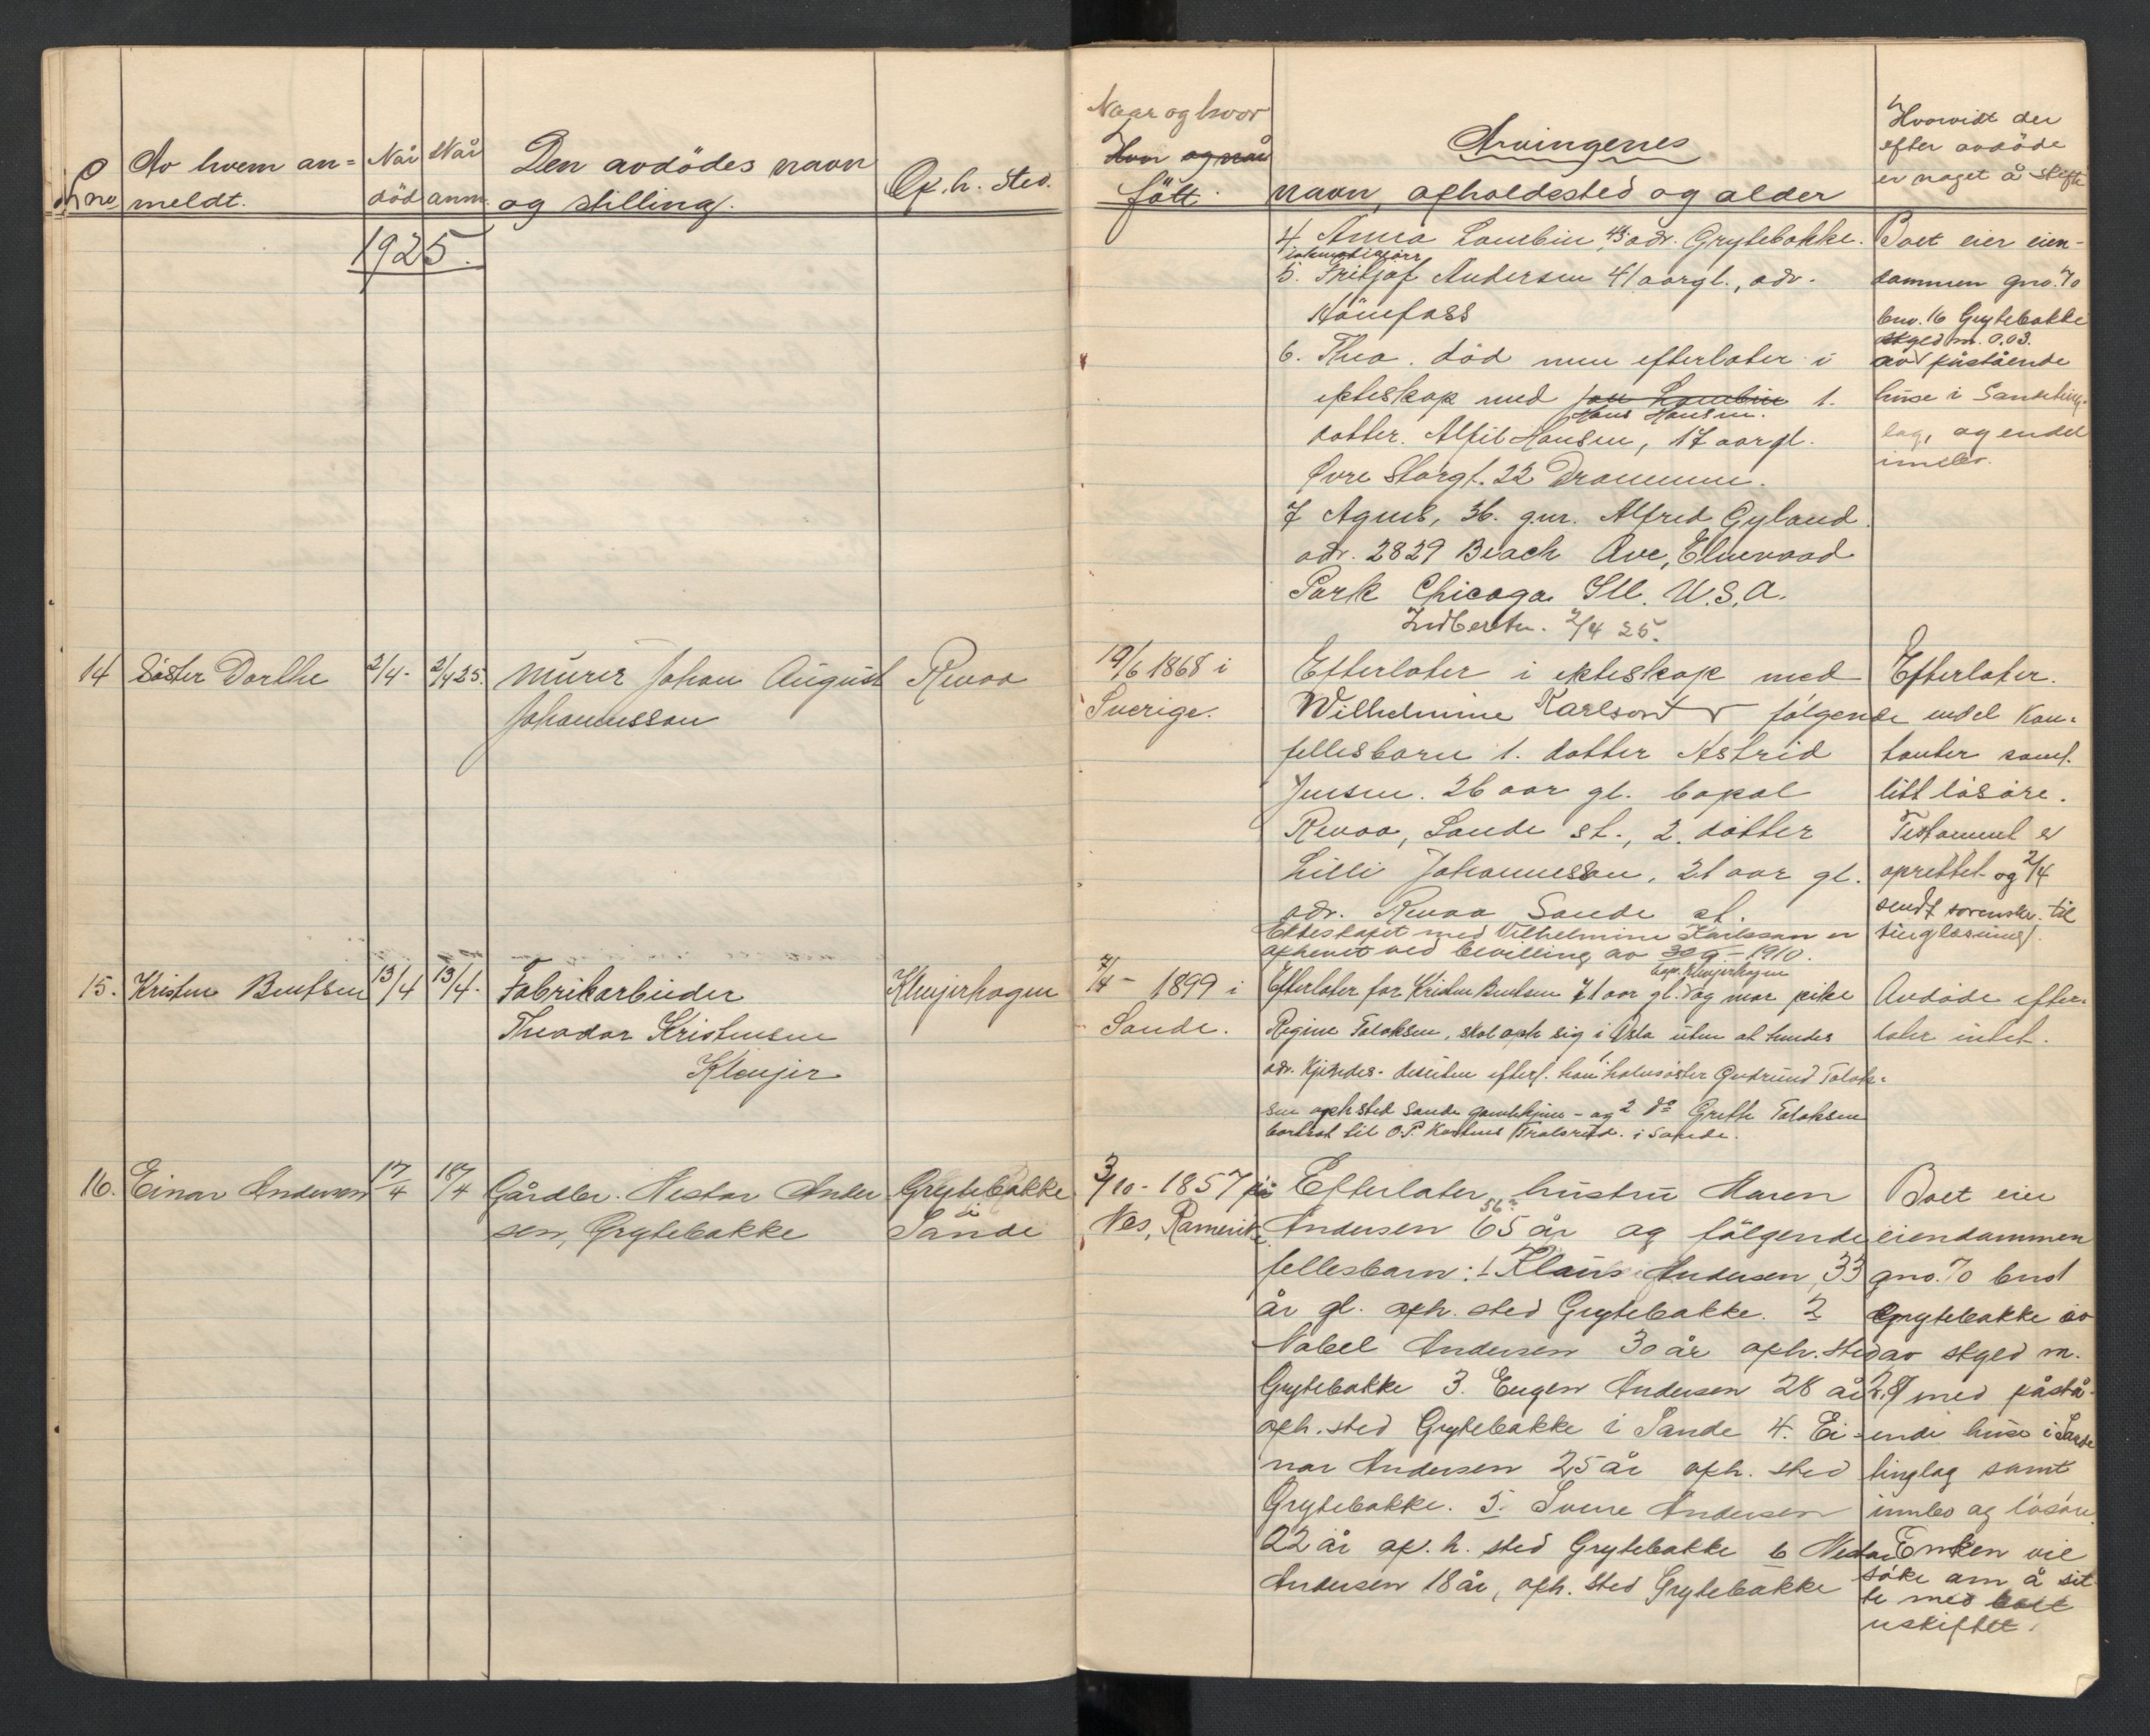 Lno
Av hvem an=
meldt.
Når
död
Når
anm.
Den avdödes navn
og stilling.
Op.h. sted.
Naar og hvor
Hvor og når
fött.
Arvingenes
navn, opholdested og alder
Hvorvidt der
efter avdöde
er noget å skifte
1925.
4. Anna Lambin, 43 adr. Grytebakke.
5. Fritjof Andersen 41 aargl., adr.
Hönefoss
6. Thea. död men efterlater i
ekteskap med Hans Hansen. 1.
datter. Alfil Hansen, 17 aar gl.
Øvre Storgt. 22 Drammen.
7 Agnes, 36. gm. Alfred Gyland.
adr. 2829 Beach Ave, Elmwood
Park Chicago Ill. U.S.A.
Indberetn. 2/4 25.
Boet eier eien-
dommen gno. 70
bno. 16 Grytebakke
av skyld m. 0.03.
påstående
huse i Sandeting-
lag, og endel
innbo.
14 Söster Dorthe 2/4- 2/4 25. Murer Johan August
Johannesson
Revaa
19/6 1868 i
Sverige.
Efterlater i ekteskap med
Wilhelmine Karlson følgende
fellesbarn 1. datter Astrid
Jensen. 26 aar gl. bopæl
Revaa, Sande st., 2. datter
Lilli Johannesson, 21 aar gl.
adr. Revaa Sande st.
Ekteskapet med Vilhelmine Karlsson er
ophevet ved bevilling av 30/9 - 1910.
Efterlater.
endel kon-
tanter samt.
litt lösöre.
Testament er
oprettet og 2/4
sendt sorenskr. til
tinglesning.
15. Kristen Bentsen 13/4 13/4. Fabrikarbeider
Theodor Kristensen
Klenjer
Klenjerhagen
7/4 - 1899 i
Sande.
bop. Klenjerhagen
Efterlater far Kristen Bentsen 71 aar gl. og mor pike
Regine Tolaksen, skal oph sig i Oslo uten at hendes
adr. kjendes. desuten efterl. han 1 halvsöster Gudrund Tolak-
sen oph sted Sande gamlehjem - og 2 do Grethe Tolaksen
bortsat til O.P. Kartnes i Sande.
Avdöde efter-
later intet.
16. Einar Andersen 17/4 18/4 Gårdbr. Nestor Ander
sen, Grytebakke
Grytebakke
i
Sande
3/10 - 1857 på
Nes, Romerike
Efterlater hustru Maren
Andersen 65 år og fölgende
fellesbarn: 1 Klaus Andersen, 33
år gl. oph. sted Grytebakke. 2
Nobel Andersen 30 år oph. sted
Grytebakke 3. Eugen Andersen 28 år
oph. sted Grytebakke i Sande 4. Ei-
nar Andersen 25 år oph. sted
Grytebakke. 5. Sverre Andersen
22 år op. h. sted Grytebakke 6 Nestor
Andersen 18 år, oph. sted Grytebakke
Boet eier
eiendommen
gno. 70 bno 1
Grytebakke av
av skyld m.
med påstå-
ende huse i Sande
tinglag samt
innbo og lösöre.
Enken vil
söke om å sit
te med boet
uskiftet.